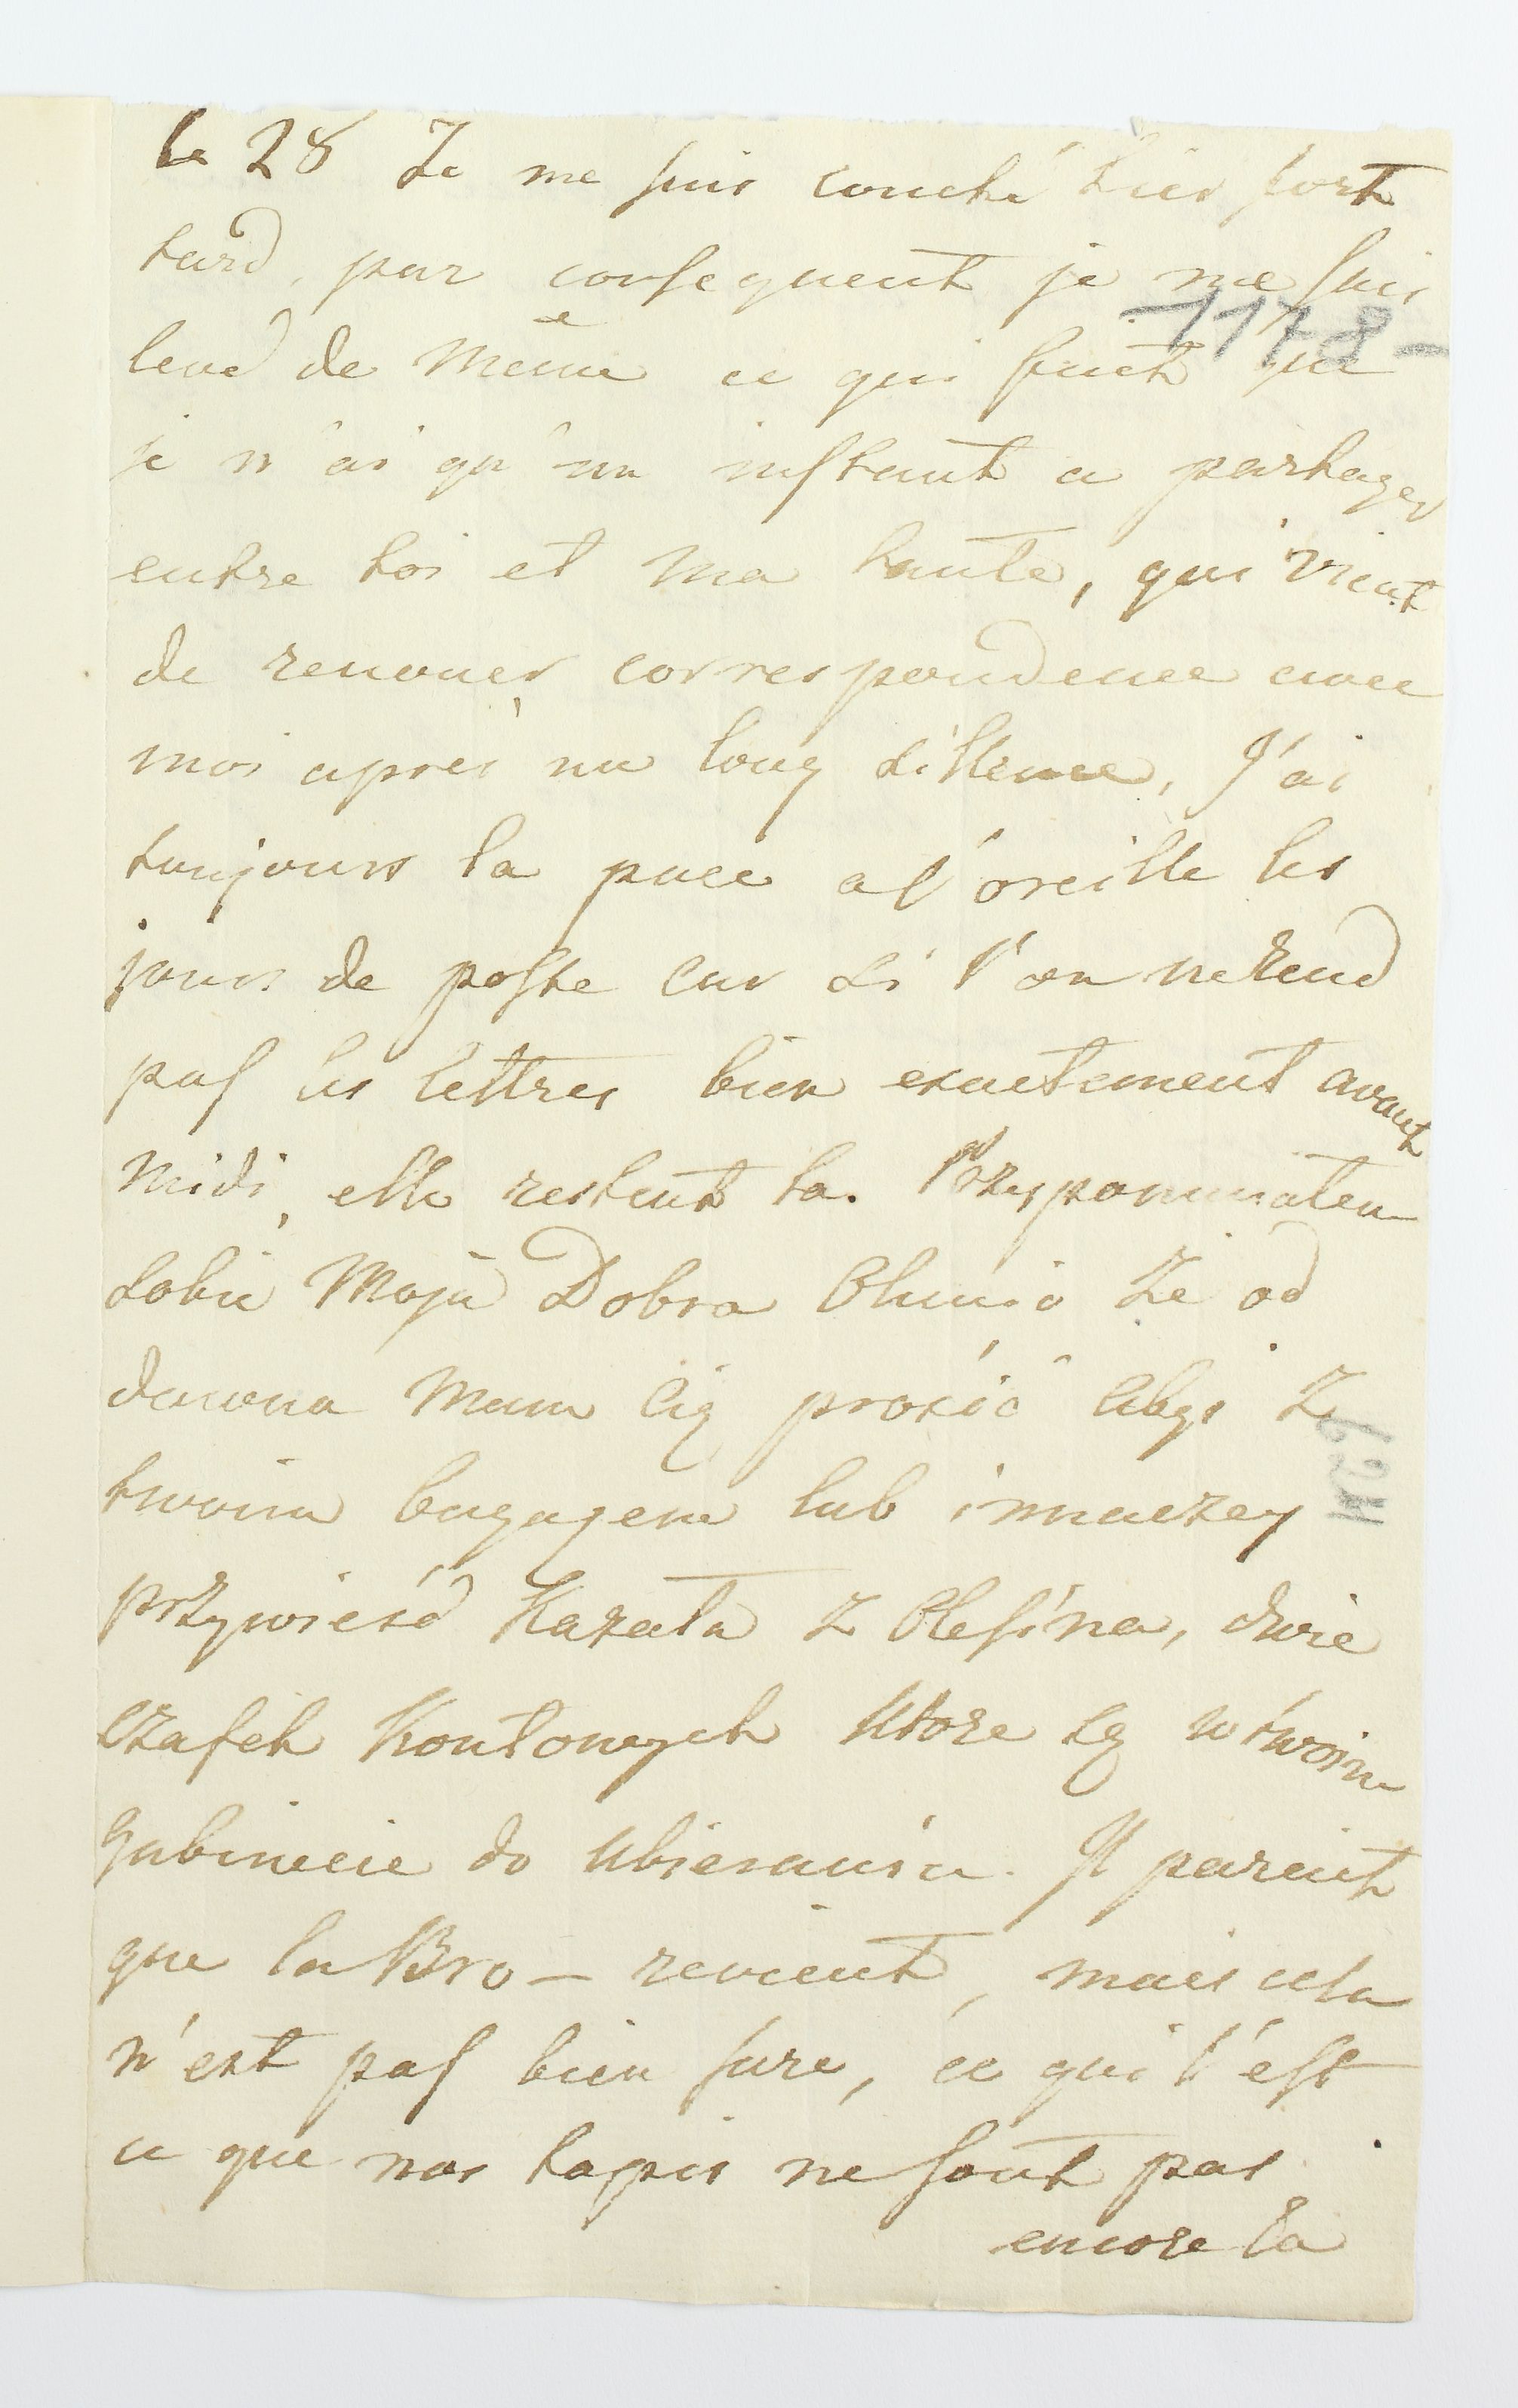 le 28 Je me suis couché hier fort
tard, par consequent je me suis
1178-
levé de même ce qui fait que
je n'ai qu'un instant a partager
entre toi et ma tante, qui vient
de renouer correspondence avec
moi après un long sillence, J'ai
toujours la puce a l'oreille les
jours de poste car si l'on ne rend
pas les lettres bien exactement avant
midi, elle restent la. Przypominałem
sobie Moja Dobra Olunio że od
dawna mam cię prosić abyś z
twoim bagagem lub innaczey
przywieść kazała z Olesina, dwie
szafek kontowych ktore są w twoim
gabinecie do ubierania. Il parait
que la Bro— revient, mais cela
n'est pas bien sure, ce qui l'est
ce que nos tapis ne sont pas
encore la